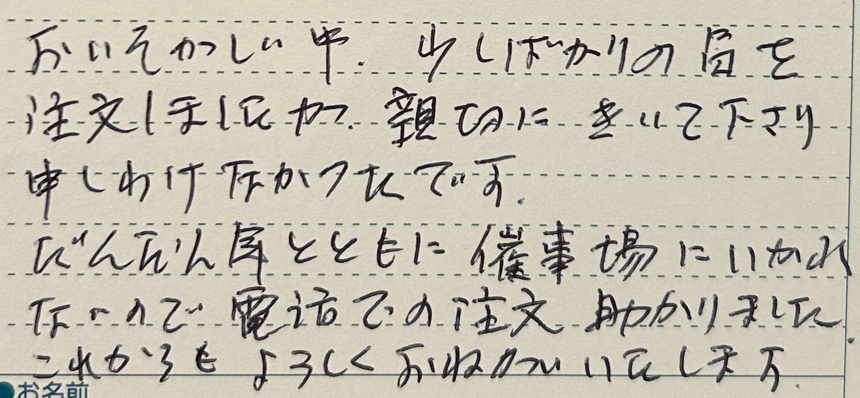 おいそがしい中、少しばかりの品を
注文しましたが、親切にきいて下さり
申しわけなかったです。
だんだん年とともに催事場にいかれ
ないので電話での注文助かりました。
これからもよろしくおねがいいたします。
●お名前